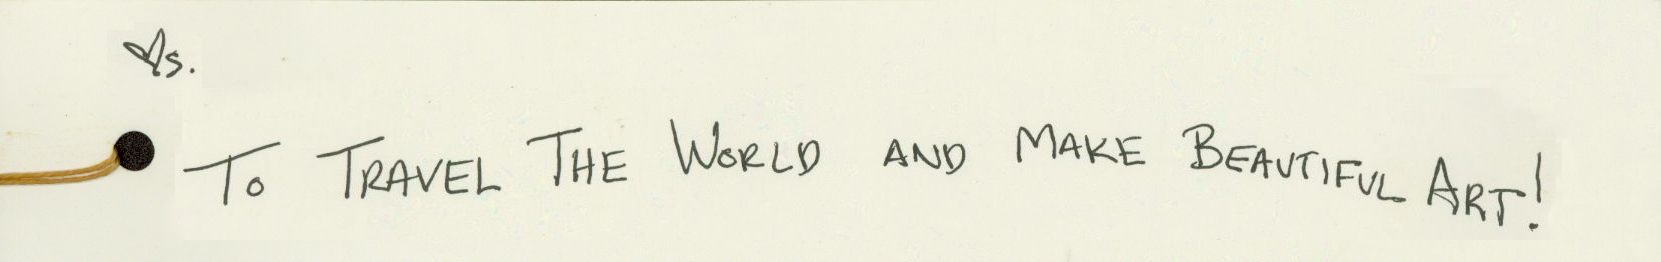 ♡s.
To TRAVEL THE WORLD AND MAKE BEAUTIFUL ART!